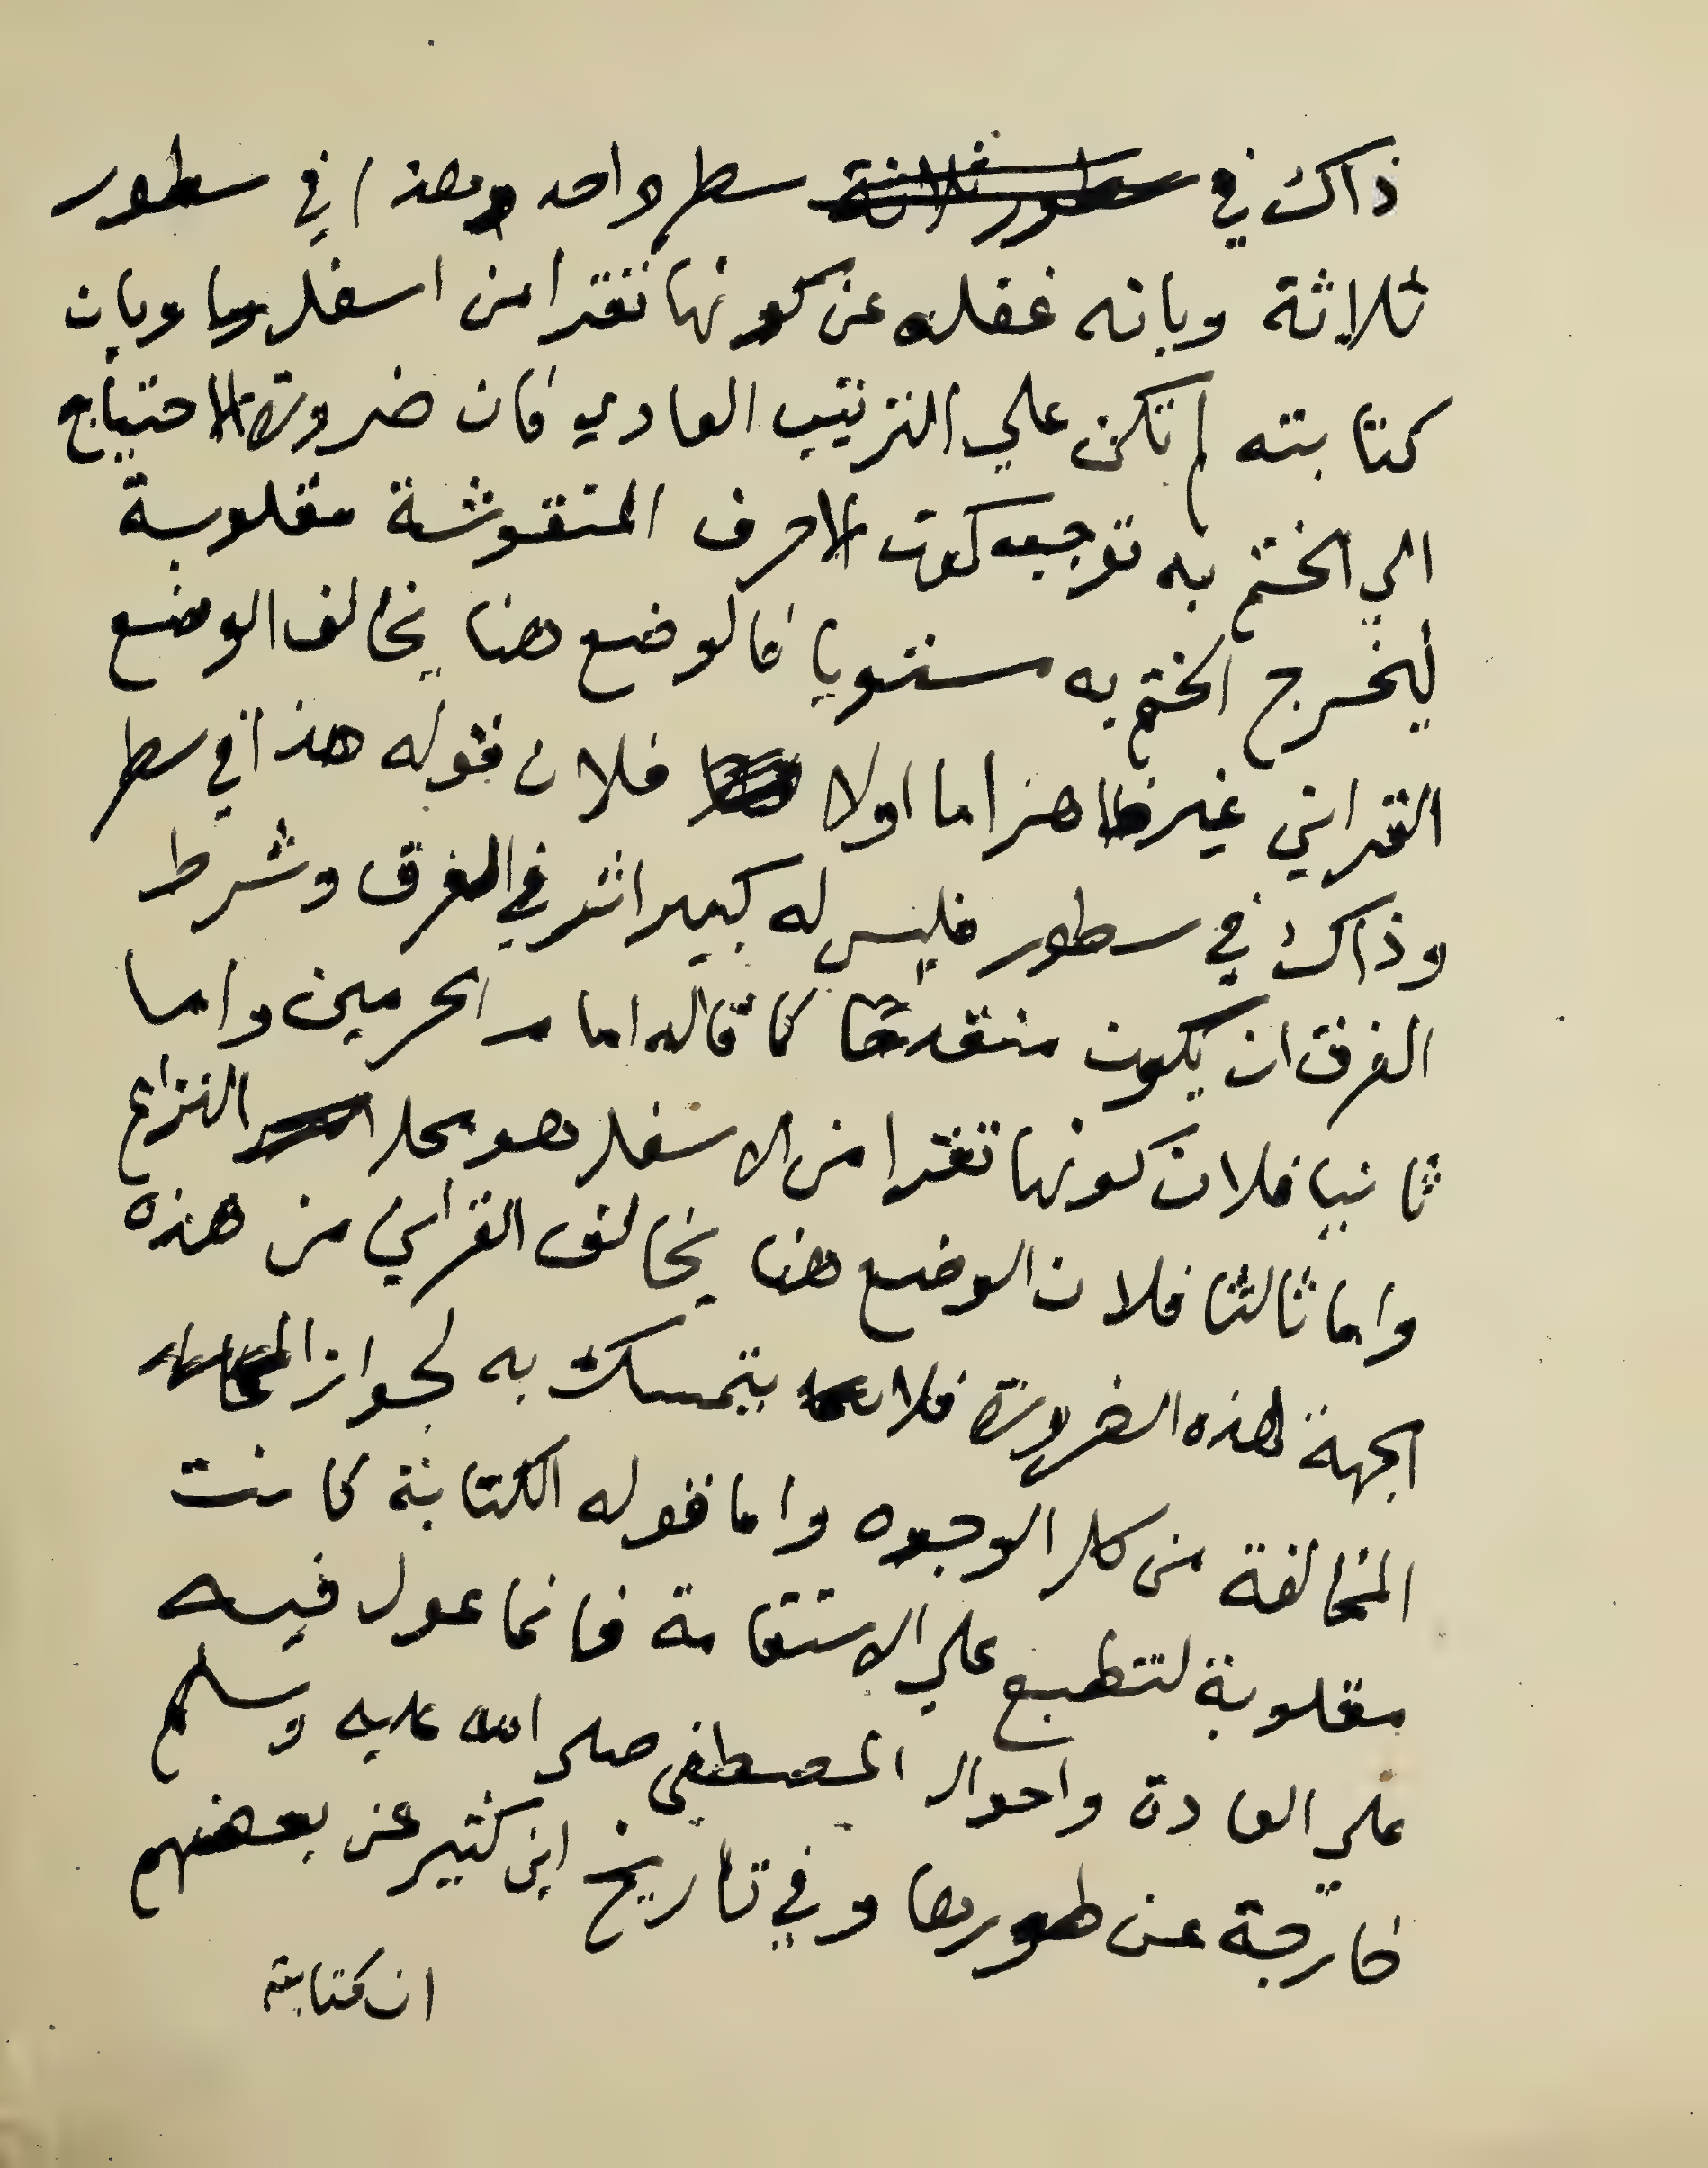 ذاك في سطور ثلاثة سطر واحد وهذا في سطور
ثلاثة وبانه غفله عن كونها تقرا من اسفل وبان
كتابته لم تكن علي الترتيب العادي فان ضرورة الاحتياج
الي الختم به توجب كون الاحرف المنقوشة مقلوبة
ليخرج الختم به مستويا فالوضع هنا يخالف الوضع
القراني غير ظاهر اما اولا فلان قوله هذا في سطر
وذاك في سطور فليس له كبير اثر في الفرق وشرط
الفرق ان يكون منقدحا كما قاله امام الحرمين واما
ثانيا فلان كونها تقرا من الاسفل هو محل النزاع
واما ثالثا فلان الوضع هنا يخالف القراني من هذه
الجهة لهذه الضرورة فلا يتمسك به لجواز
المخالفة من كل الوجوه واما قوله الكتابة كانت
مقلوبة لتطبع علي الاستقامة فانما عول فيه
علي العادة واحوال المصطفي صلي الله عليه وسلم
خارجة عن طورها وفي تاريخ ابن كثير عن بعضهم
ان كتابته